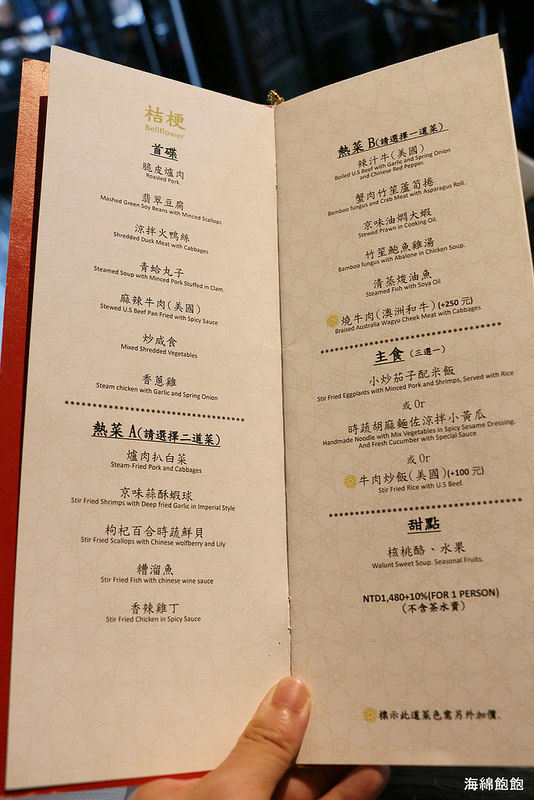 桔梗
Bellflower
首碟
脆皮爐肉
Roasted Pork.
翡翠豆腐
Mashed Green Soy Beans with Minced Scallops
涼拌火鴨絲
Shredded Duck Meat with Cabbages
青蛤丸子
Steamed Soup with Minced Pork Stuffed in Clam.
麻辣牛肉(美國)
Stewed U.S Beef Pan Fried with Spicy Sauce
炒咸食
Mixed Shredded Vegetables
香蔥雞
Steam chicken with Garlic and Spring Onion
熱菜 A(請選擇二道菜)
爐肉扒白菜
Steam-Fried Pork and Cabbages
京味蒜酥蝦球
Stir Fried Shrimps with Deep fried Garlic in Imperial Style
枸杞百合時蔬鮮貝
Stir Fried Scallops with Chinese wolfberry and Lily
糟溜魚
Stir Fried Fish with chinese wine sauce
香辣雞丁
Stir Fried Chicken in Spicy Sauce
熱菜 B(請選擇一道菜)
辣汁牛(美國)
Boiled U.S Beef with Garlic and Spring Onion
and Chinese Red Pepper.
蟹肉竹笙蘆筍捲
Bamboo fungus and Crab Meat with Asparagus Roll.
京味油燜大蝦
Stewed Prawn in Cooking Oil.
竹笙鮑魚雞湯
Bamboo fungus with Abalone in Chicken Soup.
清蒸焌油魚
Steamed Fish with Soya Oil
燒牛肉(澳洲和牛)(+250 元)
Braised Australia Wagyu Cheek Meat with Cabbages
主食 (三選一)
小炒茄子配米飯
Stir Fried Eggplants with Minced Pork and Shrimps, Served with Rice
或 Or
時蔬胡麻麵佐涼拌小黃瓜
Handmade Noodle with Mix Vegetables in Spicy Sesame Dressing.
And Fresh Cucumber with Special Sauce
或 Or
牛肉炒飯(美國)(+100 元)
Stir Fried Rice with U.S Beef.
甜點
核桃酪、水果
Walunt Sweet Soup. Seasonal Fruits.
NTD1,480+10%(FOR 1 PERSON)
(不含茶水資)
標示此道菜色需另外加價.
海綿飽飽